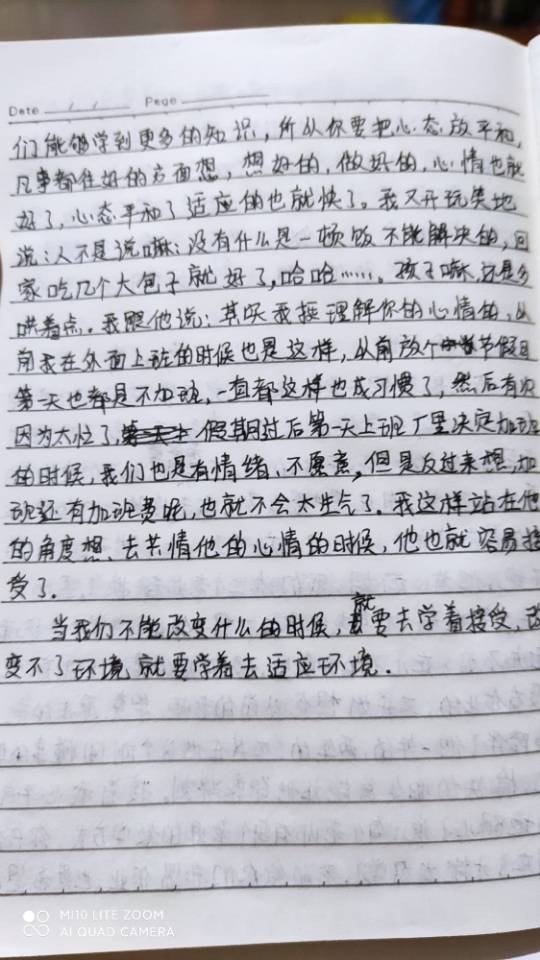 Date / / Page
们能够学到更多的知识，所以你要把心态放平和，
凡事都往好的方面想，想好的，做好的，心情也就
好了，心态平和了适应的也就快了。我又开玩笑地
说：人不是说嘛：没有什么是一顿饭不能解决的，回
家吃几个大包子就好了，哈哈……。孩子嘛，还是多
哄着点。我跟他说：其实我挺理解你的心情的，从
前我在外面上班的时候也是这样，从前放个节假日
第一天也都是不加班，一直都这样也成习惯了，然后有次
因为太忙了，假期过后第一天上班厂里决定加班
的时候，我们也是有情绪、不愿意，但是反过来想，加
班还有加班费呢，也就不会太生气了。我这样站在他
的角度想、去共情他的心情的时候，他也就容易接
受了．
当我们不能改变什么的时候，就要去学着接受，改
变不了环境就要学着去适应环境．
MI 10 LITE ZOOM
AI QUAD CAMERA